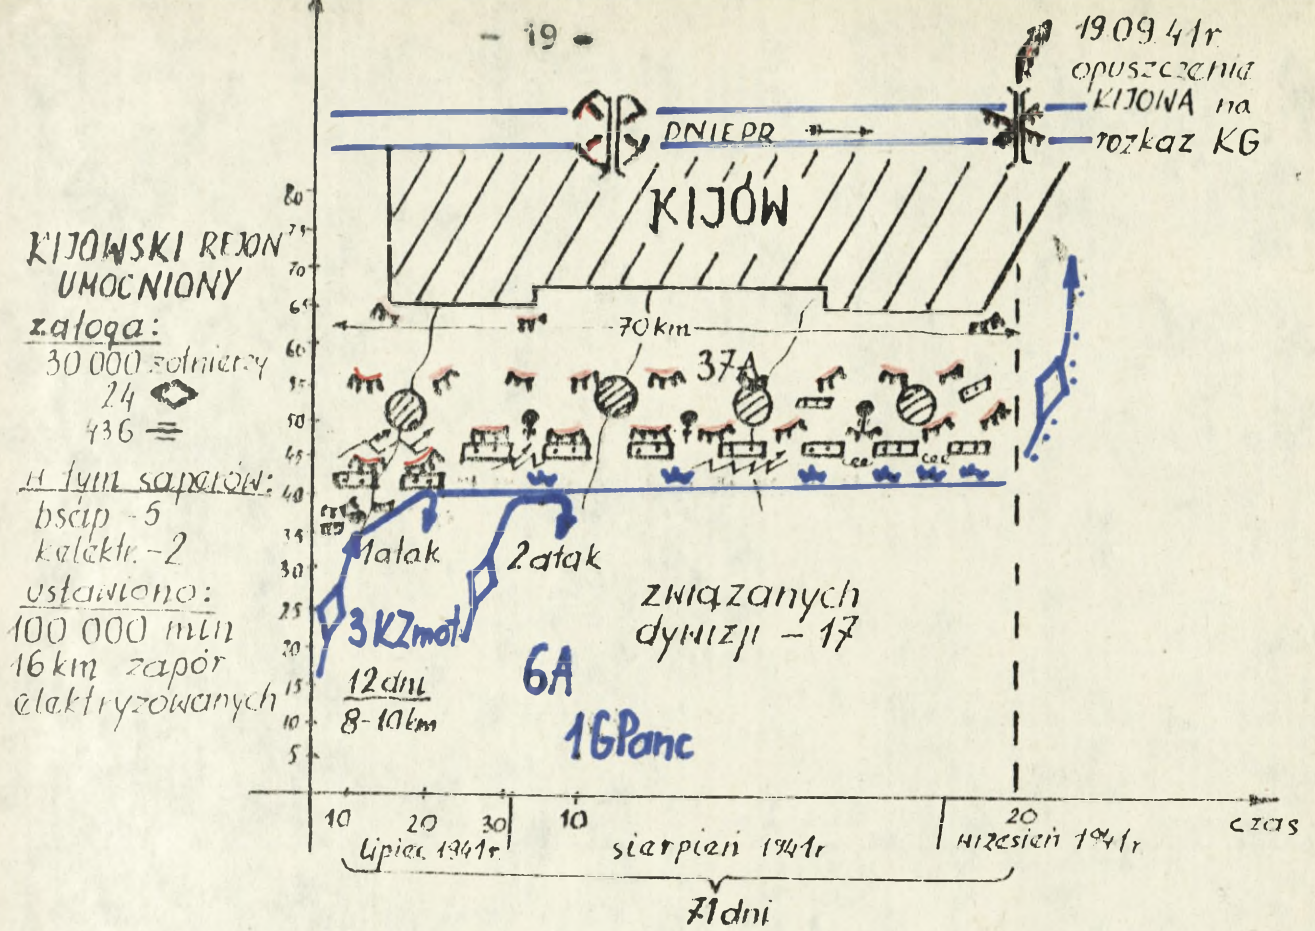 - 19 -
19.09.41r
opuszczenia
KIJOWA na
rozkaz KG
DNIEPR
KIJÓW
KIJOWSKI REJON
UMOCNIONY
załoga:
30 000 żołnierzy
24
436
w tym saperów:
bsap - 5
kelektr. - 2
ustawiono:
100 000 min
16 km zapór
elektryzowanych
80
75
70
65
60
55
50
45
40
35
30
25
20
15
10
5
70 km
37A
1 atak
2 atak
3 KZmot
12 dni
8-10 km
6A
1GPanc
związanych
dywizji - 17
10 20 30 10 20
czas
lipiec 1941r. sierpień 1941r wrzesień 1941r.
71 dni